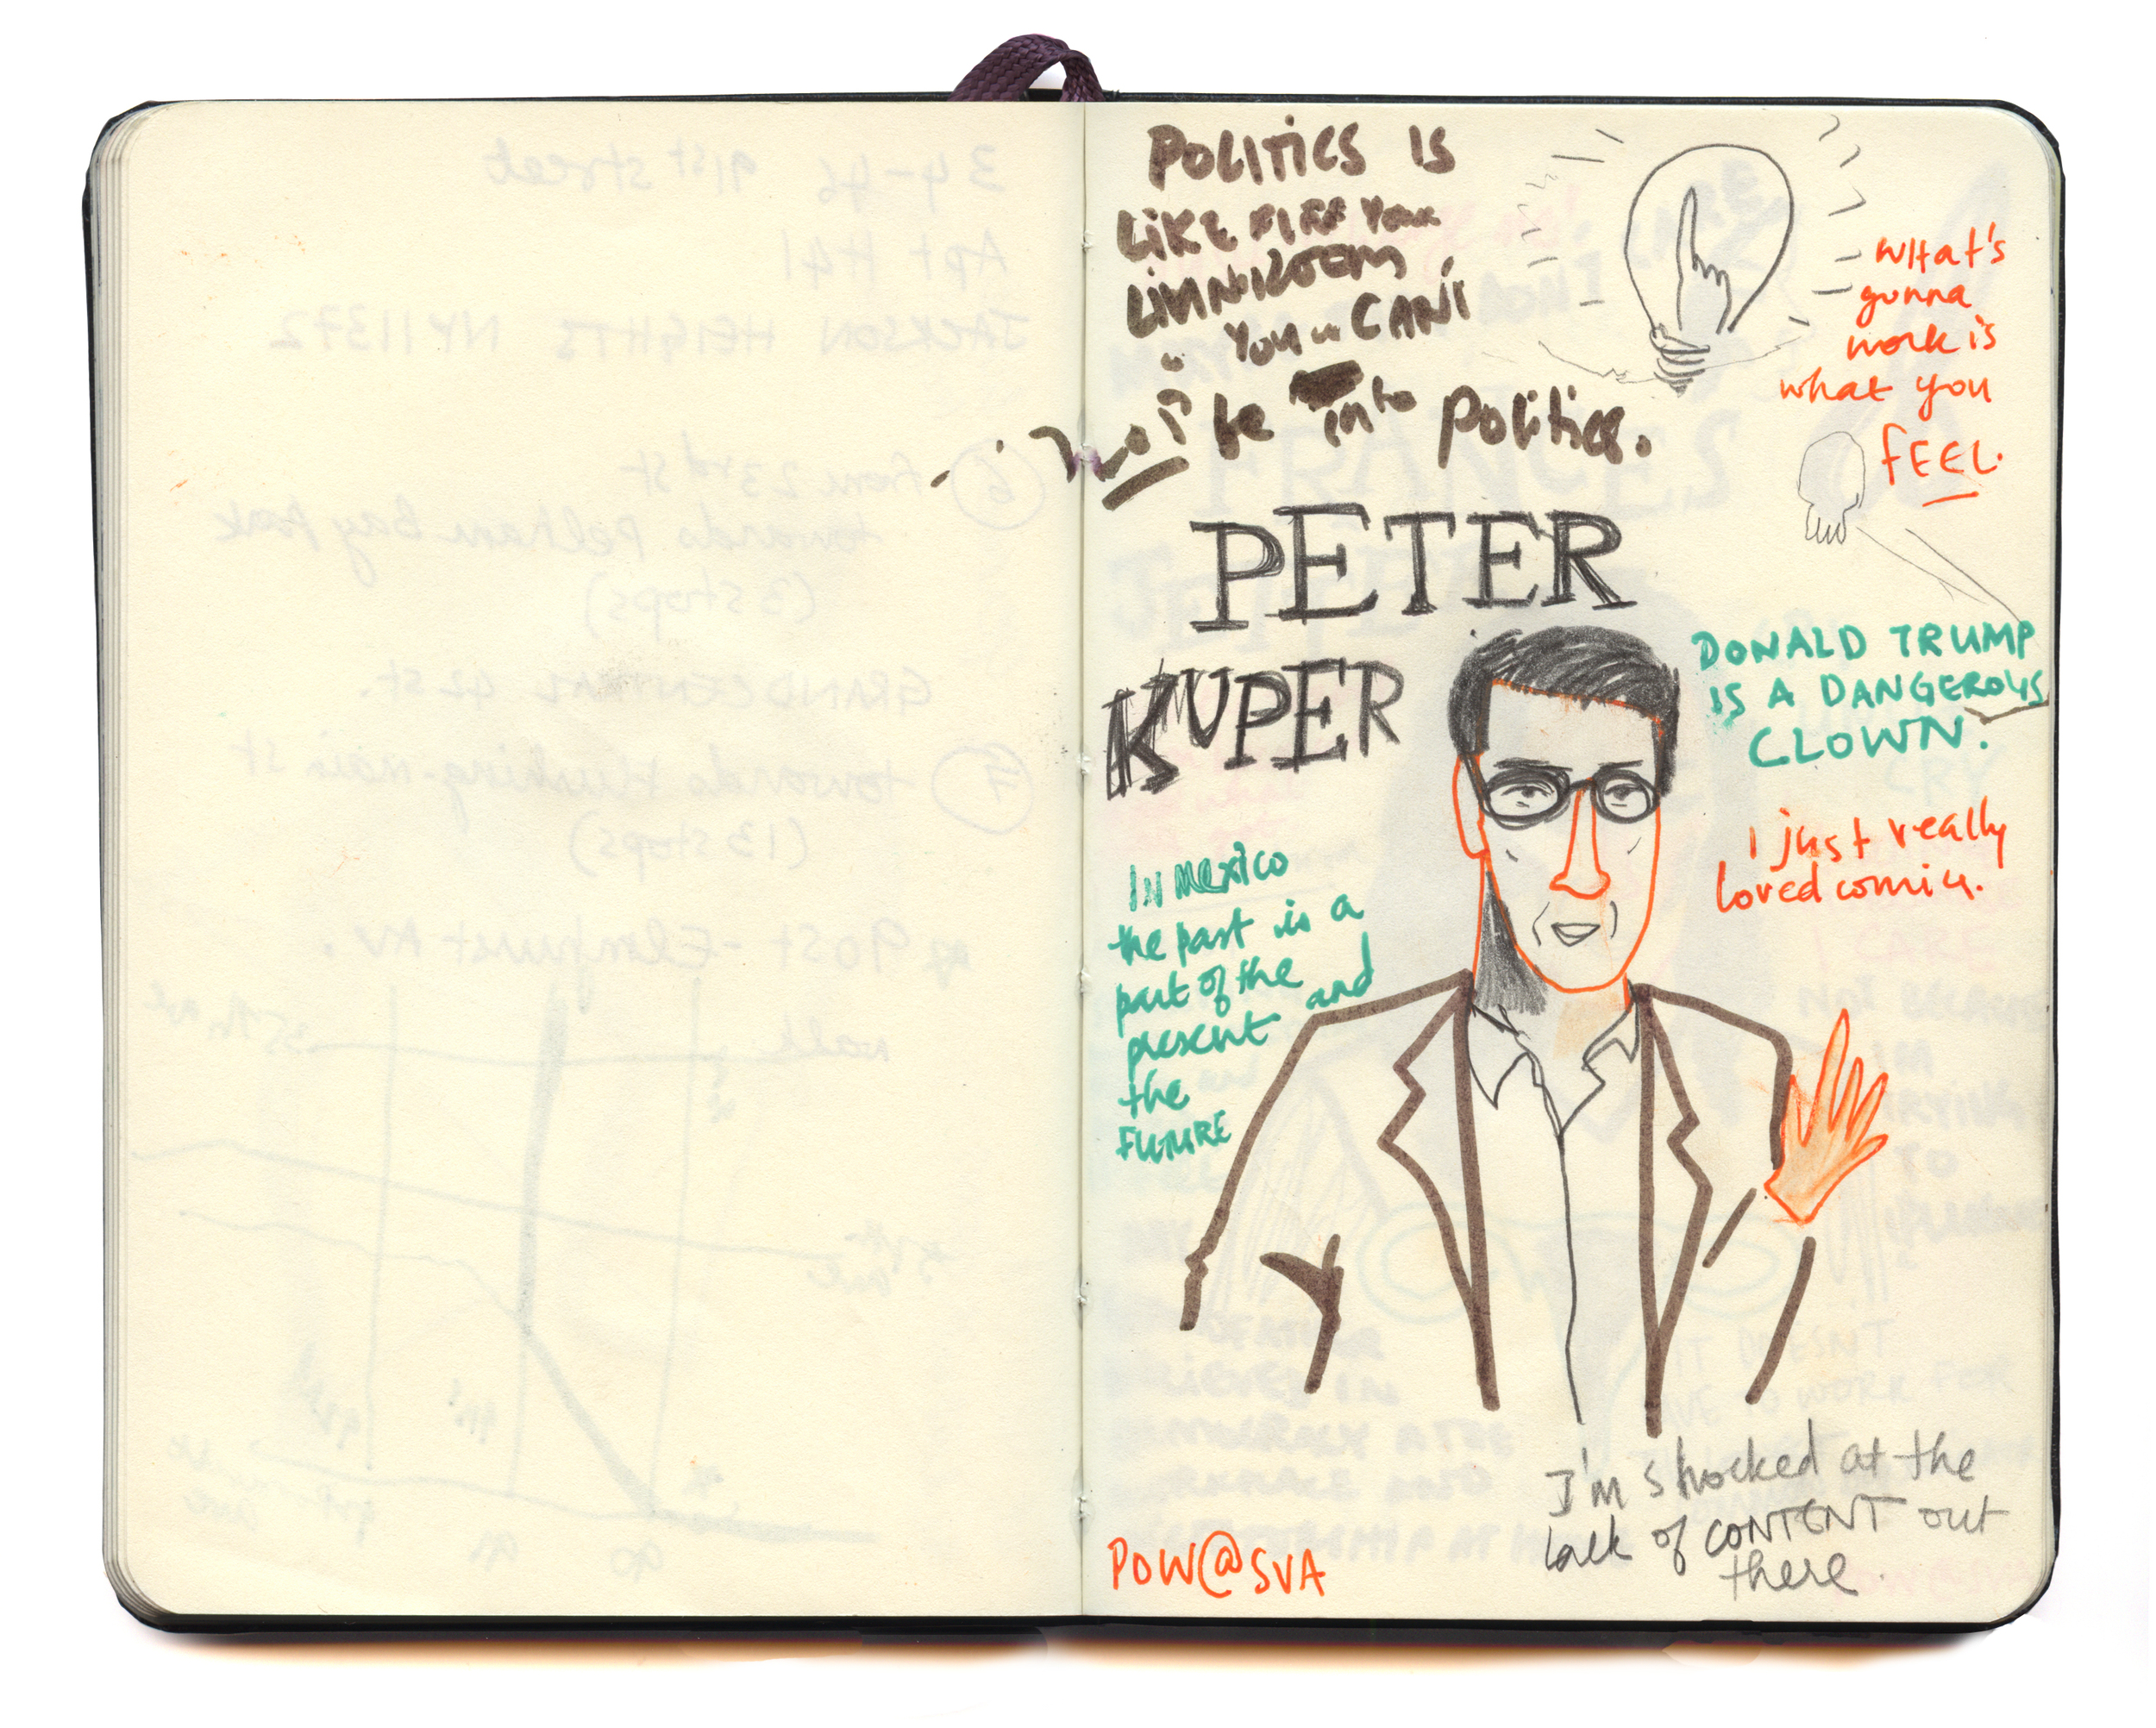 POLITICS IS
LIKE FIRE YOUR
LIVINROOM
YOU CAN'T
NOT be into politics.
WHAT's
gunna
work is
what you
FEEL.
PETER
KUPER
DONALD TRUMP
IS A DANGEROUS
CLOWN.
I just really
loved comics.
IN MEXICO
the past is a
part of the
present and
the
FUTURE
I'm shocked at the
lack of CONTENT out
there.
POW@SVA